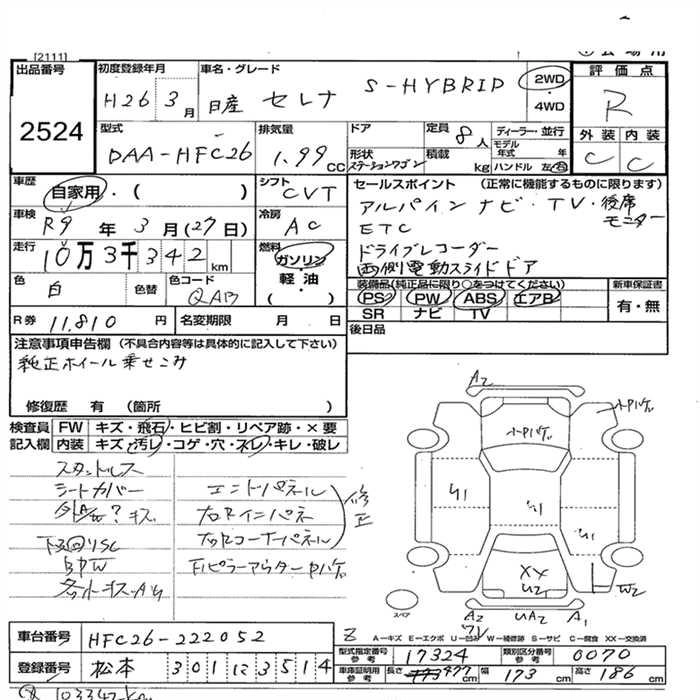 [2111]
出品番号
2524
初度登録年月
H26 3月
車名・グレード
日産 セレナ S-HYBRID
2WD
・4WD
評価点
R
外装 内装
C C
型式
DAA-HFC26
排気量
1.99 CC
ドア
形状
ステーションワゴン
定員 8人
積載 kg
ディーラー・並行
モデル年式 年
ハンドル 左・右
車歴
自家用・( )
シフト
CVT
セールスポイント (正常に機能するものに限ります)
アルパインナビ・TV・後席モニター
ETC
ドライブレコーダー
両側電動スライドドア
車検
R9年3月(27日)
冷房
AC
走行
10万3千342km
燃料
ガソリン・
軽油・
( )
色
白
色替
色コード
QAB
装備品(純正品に限り○をつけてください)
PS PW ABS エアB
SR ナビ TV
新車保証書
有・無
R券 11,810円
名変期限 月 日
後日品
注意事項申告欄 (不具合内容等は具体的に記入して下さい)
純正ホイール乗せこみ
修復歴 有 (箇所 )
検査員
記入欄
FW キズ・飛石・ヒビ割・リペア跡・×要
内装 キズ・汚レ・コゲ・穴・スレ・キレ・破レ
スタッドレス
シートカバー
エンドパネル
右Rインパネ
右Rコーナーパネル
修正
A2
U1
U1
U1
XX
U2
W2
A2
UA2
A1
スペア
A-キズ E-エクボ U-凹み W-補修跡 S-サビ C-腐食 XX-交換済
車台番号
HFC26-222052
登録番号
松本 301 12 3514
型式指定番号
参考
17324
類別区分番号
参考
0070
車庫証明用
参考
長さ 477cm
幅 173cm
高さ 186cm